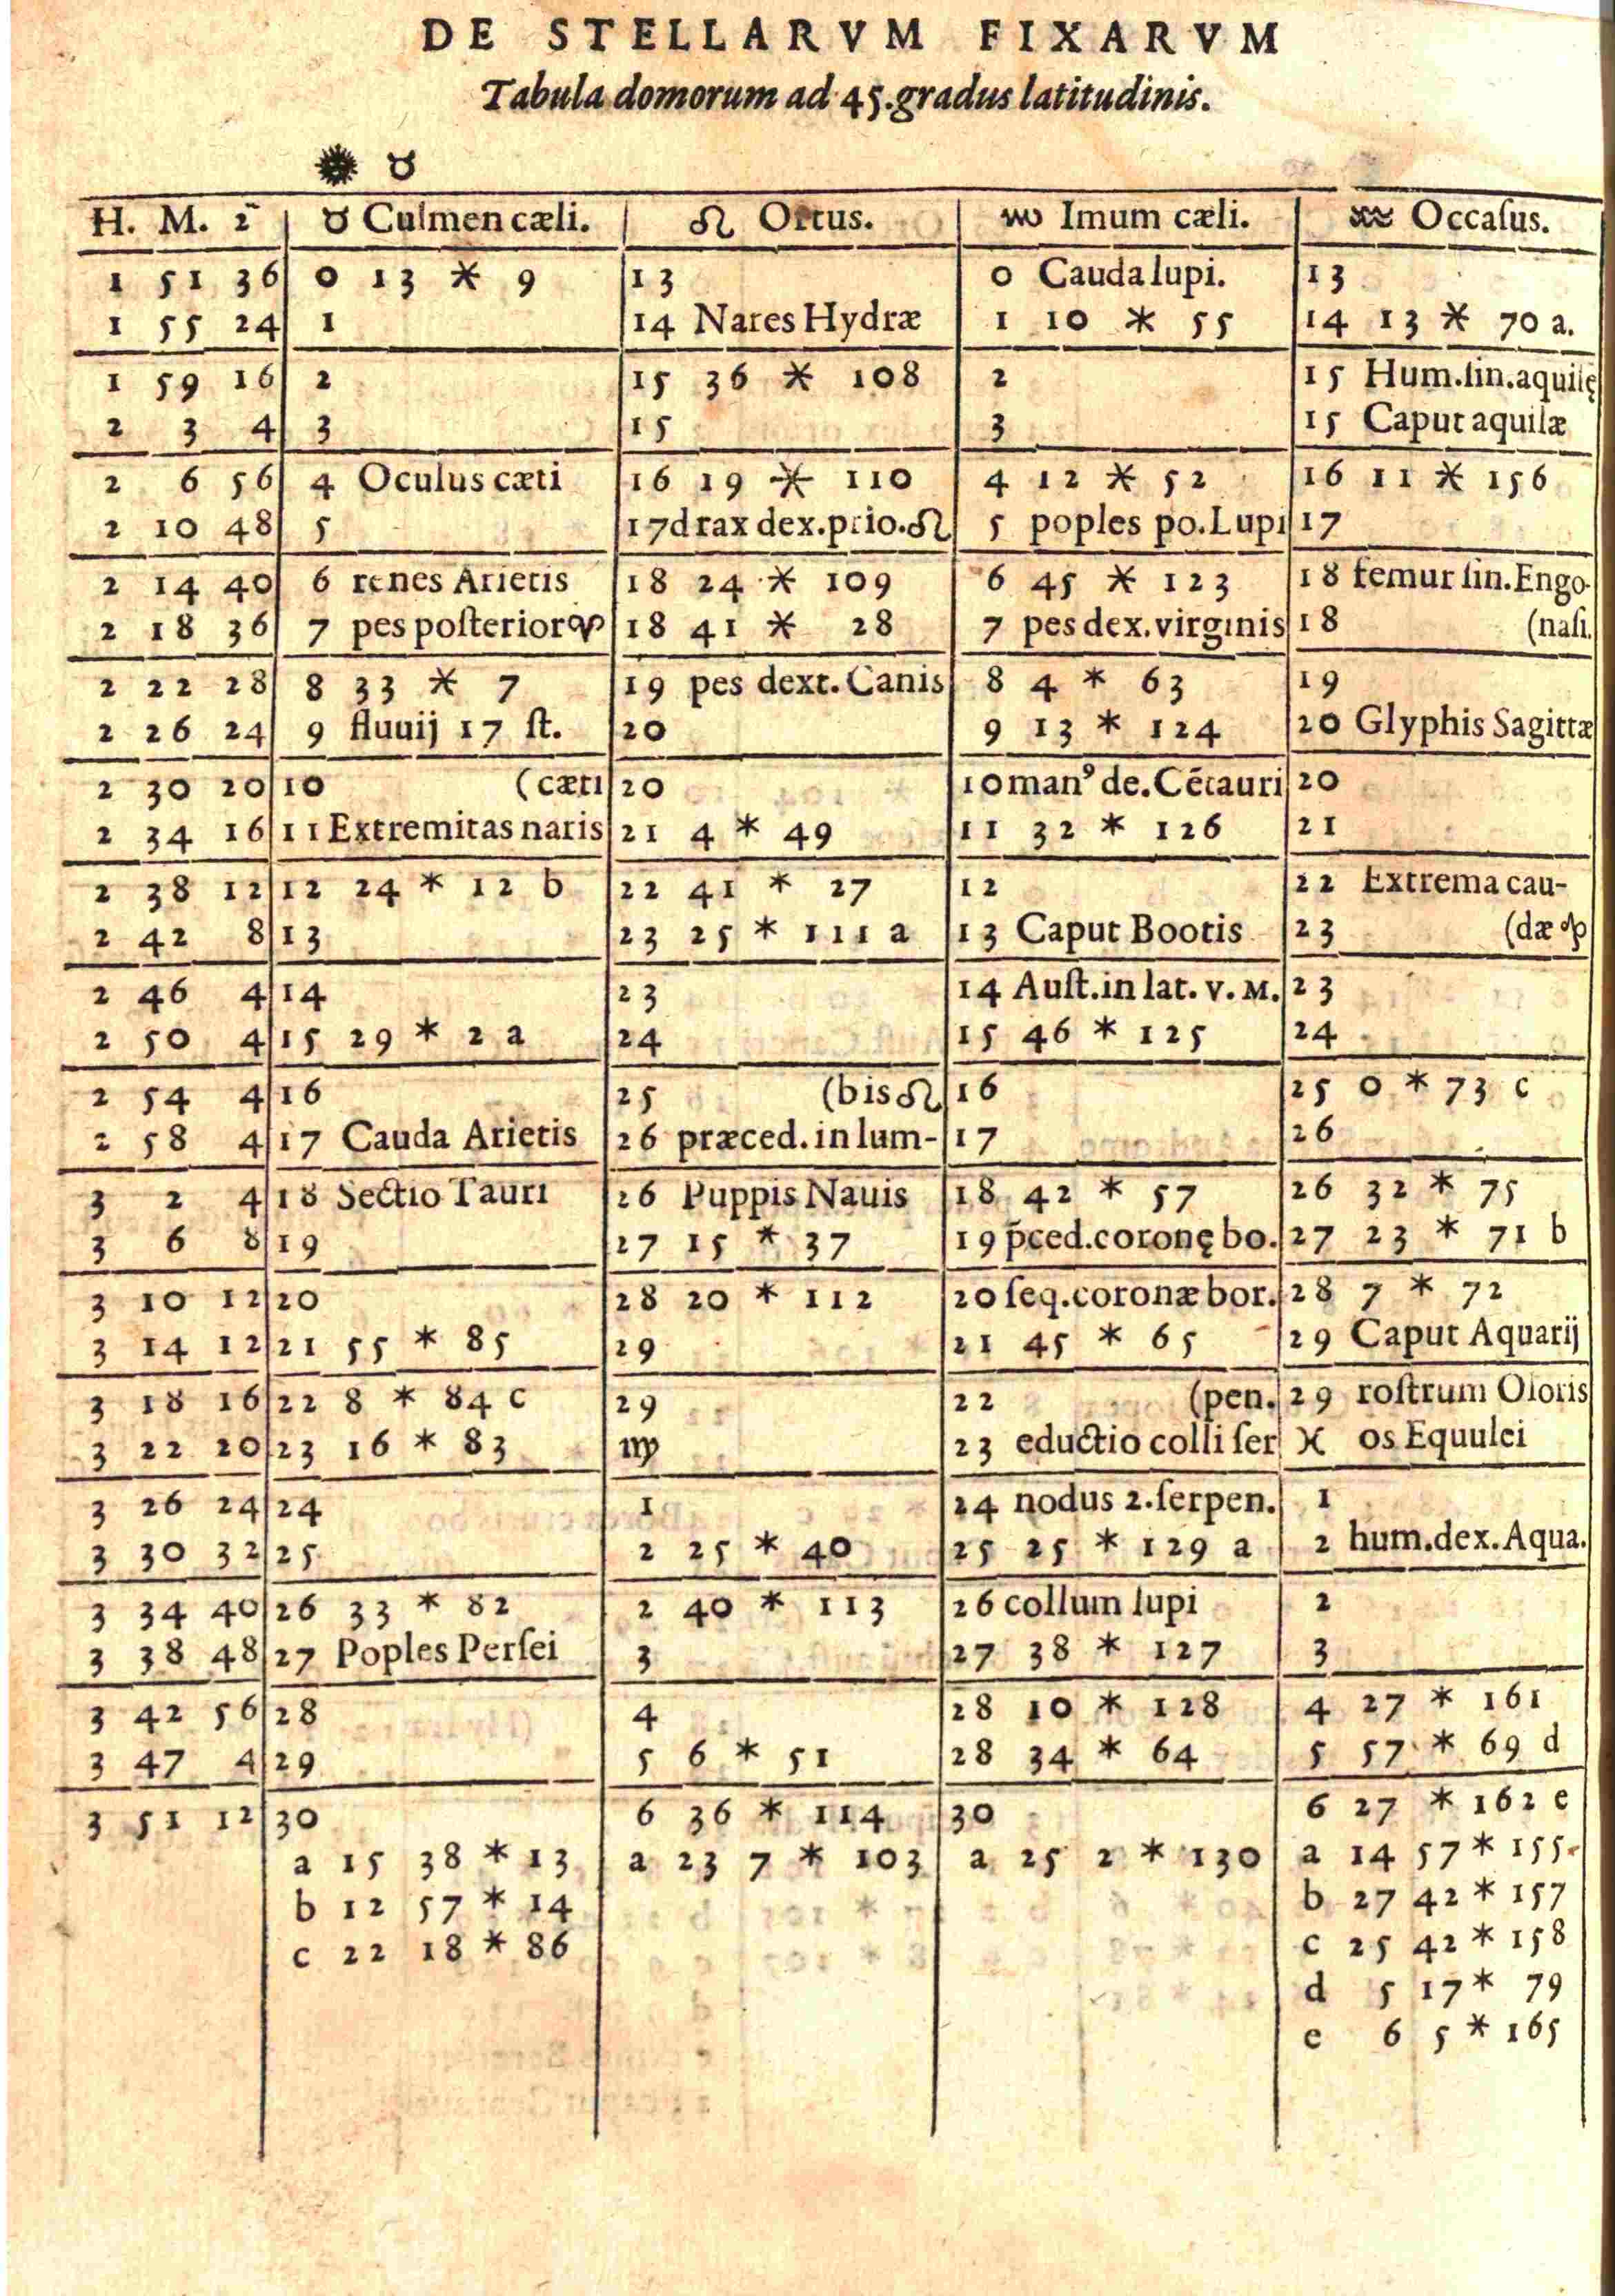 DE STELLARVM FIXARVM
Tabula domorum ad 45. gradus latitudinis.
☀ ♉
H. M. 2̄ | ♉ Culmen cæli. | ♌ Ortus. | ♏ Imum cæli. | ♒ Occaſus.
1 51 36 | 0 13 * 9 | 13 | 0 Cauda lupi. | 13
1 55 24 | 1 | 14 Nares Hydræ | 1 10 * 55 | 14 13 * 70 a.
1 59 16 | 2 | 15 36 * 108 | 2 | 15 Hum. ſin. aquilę
2 3 4 | 3 | 15 | 3 | 15 Caput aquilæ
2 6 56 | 4 Oculus cæti | 16 19 * 110 | 4 12 * 52 | 16 11 * 156
2 10 48 | 5 | 17 drax dex. prio. ♌ | 5 poples po. Lupi | 17
2 14 40 | 6 renes Arietis | 18 24 * 109 | 6 45 * 123 | 18 femur ſin. Engo-
2 18 36 | 7 pes poſterior ♈ | 18 41 * 28 | 7 pes dex. virginis | 18 (naſi.
2 22 28 | 8 33 * 7 | 19 pes dext. Canis | 8 4 * 63 | 19
2 26 24 | 9 fluuij 17 ſt. | 20 | 9 13 * 124 | 20 Glyphis Sagittæ
2 30 20 | 10 (cæti | 20 | 10 manꝰ de. Cētauri | 20
2 34 16 | 11 Extremitas naris | 21 4 * 49 | 11 32 * 126 | 21
2 38 12 | 12 24 * 12 b | 22 41 * 27 | 12 | 22 Extrema cau-
2 42 8 | 13 | 23 25 * 111 a | 13 Caput Bootis | 23 (dæ ♑
2 46 4 | 14 | 23 | 14 Auſt. in lat. v. M. | 23
2 50 4 | 15 29 * 2 a | 24 | 15 46 * 125 | 24
2 54 4 | 16 | 25 (bis ♌ | 16 | 25 0 * 73 c
2 58 4 | 17 Cauda Arietis | 26 præced. in lum- | 17 | 26
3 2 4 | 18 Sectio Tauri | 26 Puppis Nauis | 18 42 * 57 | 26 32 * 75
3 6 8 | 19 | 27 15 * 37 | 19 p̄ced. coronę bo. | 27 23 * 71 b
3 10 12 | 20 | 28 20 * 112 | 20 ſeq. coronæ bor. | 28 7 * 72
3 14 12 | 21 55 * 85 | 29 | 21 45 * 65 | 29 Caput Aquarij
3 18 16 | 22 8 * 84 c | 29 | 22 (pen. | 29 roſtrum Oloris
3 22 20 | 23 16 * 83 | ♍ | 23 eductio colli ſer | ♓ os Equulei
3 26 24 | 24 | 1 | 24 nodus 2. ſerpen. | 1
3 30 32 | 25 | 2 25 * 40 | 25 25 * 129 a | 2 hum. dex. Aqua.
3 34 40 | 26 33 * 82 | 2 40 * 113 | 26 collum lupi | 2
3 38 48 | 27 Poples Perſei | 3 | 27 38 * 127 | 3
3 42 56 | 28 | 4 | 28 10 * 128 | 4 27 * 161
3 47 4 | 29 | 5 6 * 51 | 28 34 * 64 | 5 57 * 69 d
3 51 12 | 30 | 6 36 * 114 | 30 | 6 27 * 162 e
a 15 38 * 13 | a 23 7 * 103 | a 25 2 * 130 | a 14 57 * 155
b 12 57 * 14 | b 27 42 * 157
c 22 18 * 86 | c 25 42 * 158
d 5 17 * 79
e 6 5 * 165